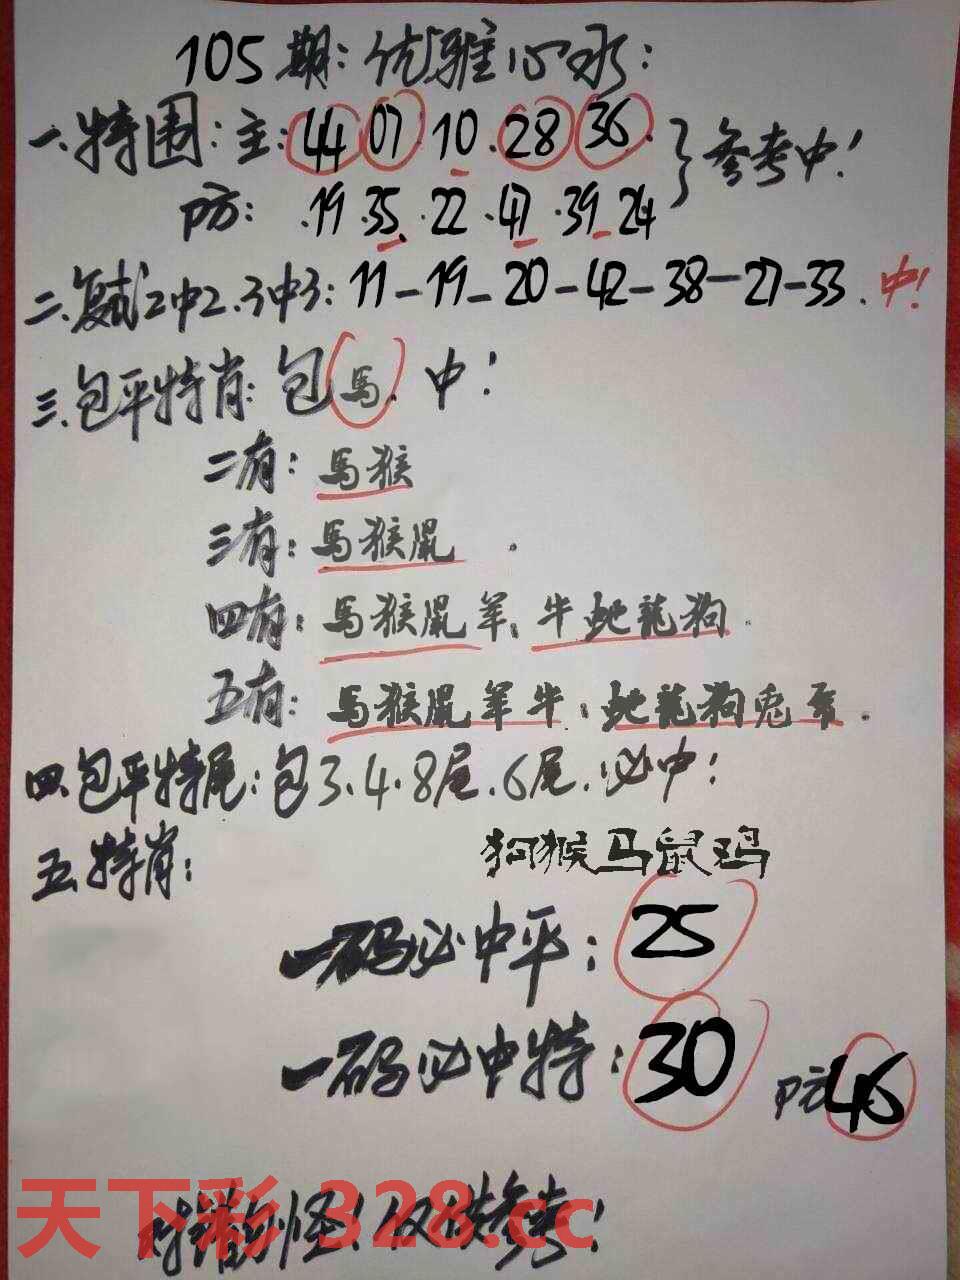 105期:优雅心水:
一.特围:主:44 07·10·28 36·
防:·19·35·22·47·39·24
}参考中!
二.复试2中2.3中3:11-19-20-42-38-27-33.中!
三.包平特肖:包馬.中!
二有:馬猴
三有:馬猴鼠.
四有:馬猴鼠羊、牛蛇龍狗.
五有:馬猴鼠羊牛:蛇龍狗兔.
四.包平特尾:包3.4.8尾.6尾.必中!
五.特肖:狗猴马鼠鸡
一码必中平:25
一码必中特:30 防46
对错勿怪!仅供参考!
天下彩 328.cc